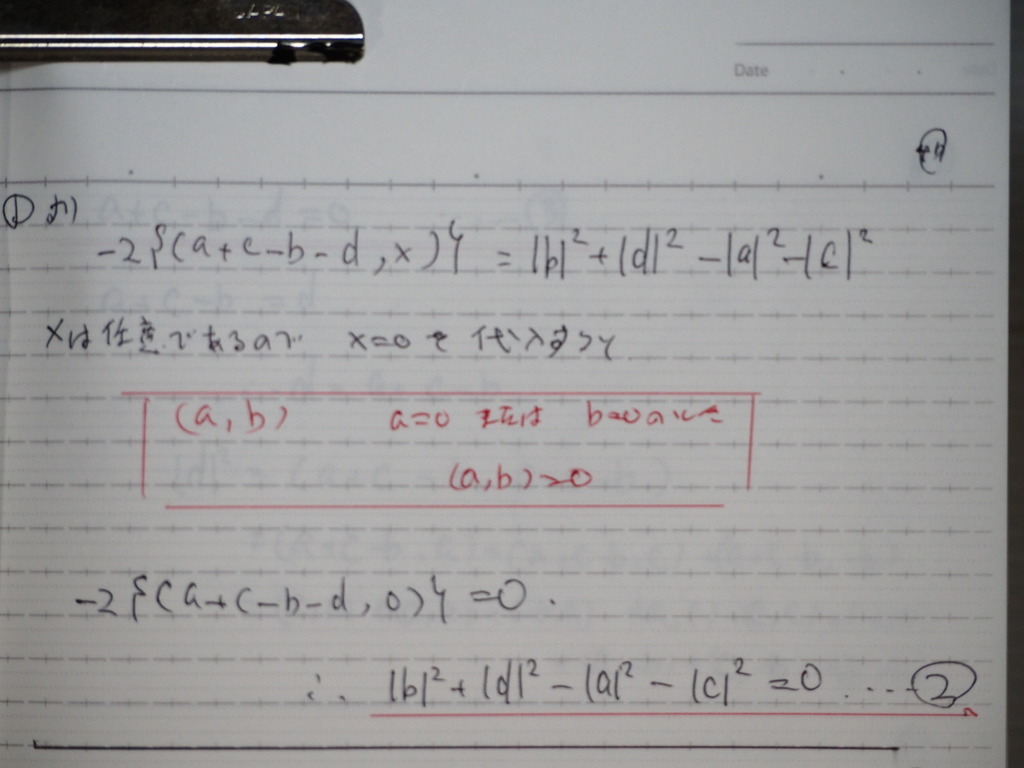 Date
①より
-2{(a+c-b-d,x)} = |b|²+|d|²-|a|²-|c|²
xは任意であるので x=0を代入すると
(a,b) a=0 または b=0のとき
(a,b)=0
-2{(a+c-b-d,0)}=0.
∴ |b|²+|d|²-|a|²-|c|²=0 ····②